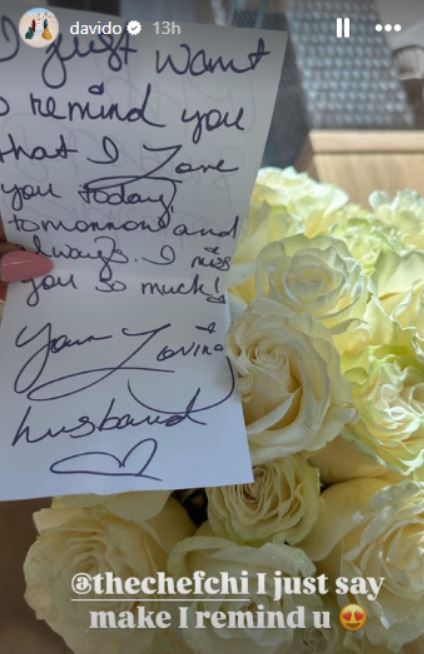 davido 13h
I just want
o remind you
that I Love
you today
tomorrow and
always. I miss
you so much!
Your Loving
husband
@thechefchi I just say
make I remind u 😍